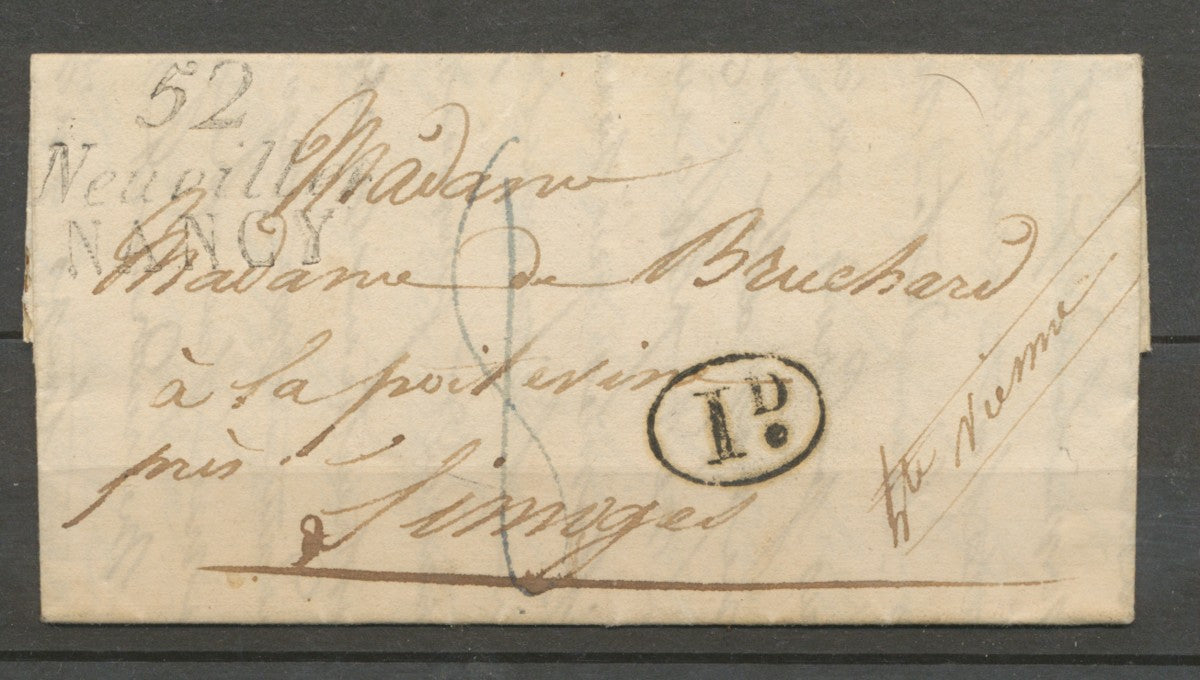 52
Neuviller
NANCY
Madame
Madame de Bruchard
à la poitevine
1D.
près Limoges
hte vienne